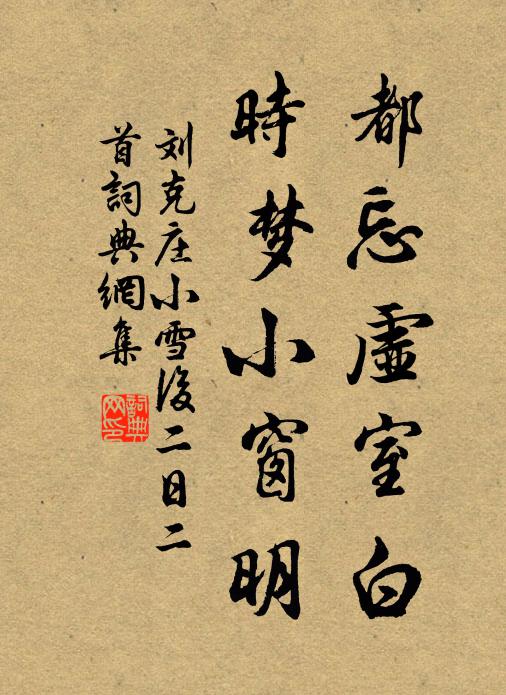 都忘虚室白
时梦小窗明
刘克庄小雪後二日二
首詞典網集
詞典网印